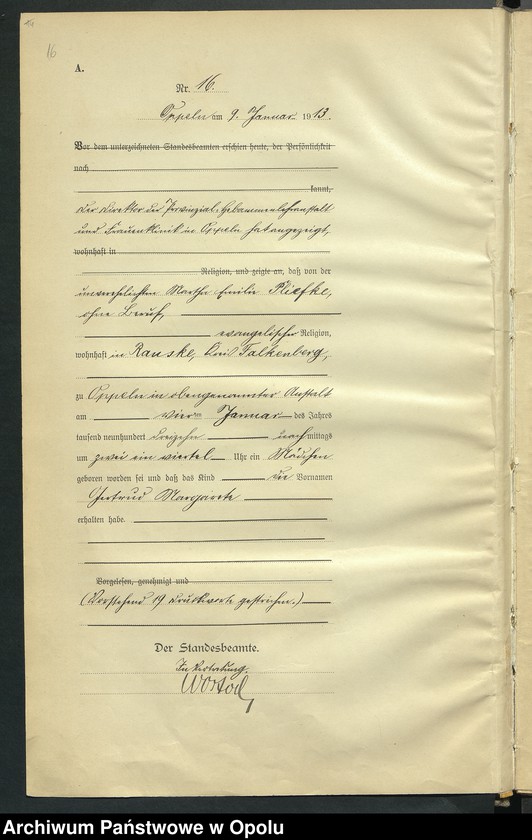 16
A.
Nr. 16.
Oppeln am 9. Januar 1913.
Vor dem unterzeichneten Standesbeamten erschien heute, der Persönlichkeit
nach
kannt,
Der Direktor der Provinzial-Hebammenlehranstalt
und Frauenklinik in Oppeln hat angezeigt,
wohnhaft in
Religion, und zeigte an, daß von der
unverehelichten Martha Emilie Pliefke,
ohne Beruf,
evangelischer Religion,
wohnhaft in Rauske, Kreis Falkenberg,
zu Oppeln in obengenannter Anstalt
am vierten Januar des Jahres
tausend neunhundert dreizehn nachmittags
um zwei ein viertel Uhr ein Mädchen
geboren worden sei und daß das Kind die Vornamen
Gertrud Margarete
erhalten habe.
Vorgelesen, genehmigt und
(Vorstehend 19 Druckworte gestrichen.)
Der Standesbeamte.
In Vertretung.
Archiwum Państwowe w Opolu